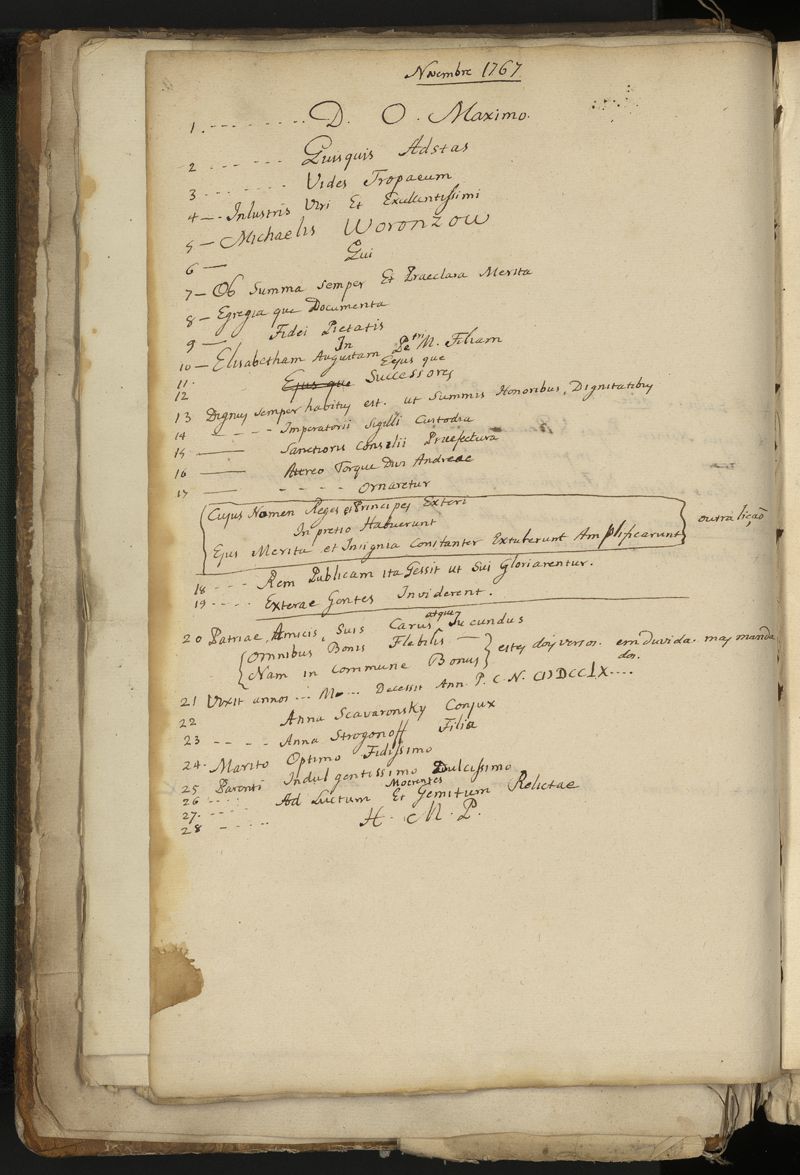 Novembre 1767
1. - - - - - - - - D. O. Maximo.
2 - - - - - - Quisquis Adstas
3 - - - - - - - Vides Tropaeum
4 -- Inlustris Viri Et Excellentissimi
5 - Michaelis Woronzow
6 — Qui
7 - Ob Summa Semper Et Praeclara Merita
8 - Egregia que Documenta
9 — Fidei Pietatis
In
10 - Elisabetham Augustam Petri M. Filiam
11. Ejus que
12 Ejus que Successores
13 Dignus semper habitus est. ut Summis Honoribus, Dignitatibus
14 - - - - - Imperatorii Sigilli Custodia
15 —— Sanctioris Consilii Praefectura
16 —— Aureo Torque Divi Andreae
17 —— - - - - - Ornaretur
Cujus Nomen Reges et Principes Exteri
In pretio Habuerunt
Ejus Merita et Insignia Constanter Extuberunt Amplificarunt outra lição
18 - - - Rem Publicam ita Gessit ut Sui Gloriarentur.
19 - - - - - Exterae Gentes Inviderent.
20 Patriae, Amicis, Suis Carus atque Jucundus
Omnibus Bonis Flebilis —
Nam in commune Bonus estes doys versos. em duvida. mas manda
dos.
21 Vixit annos ... M... Decessit Ann. P. C. N. CIↃDCCLX....
22 Anna Scavaronsky Conjux
23 - - - - Anna Strogonoff Filia
24. Marito Optimo Fidissimo
25 Parenti Indulgentissimo Dulcissimo
26 - - - - Moerentes
27. - - - - Ad Luctum Et Gemitum Relictae
28 - - - - - H. M. P.